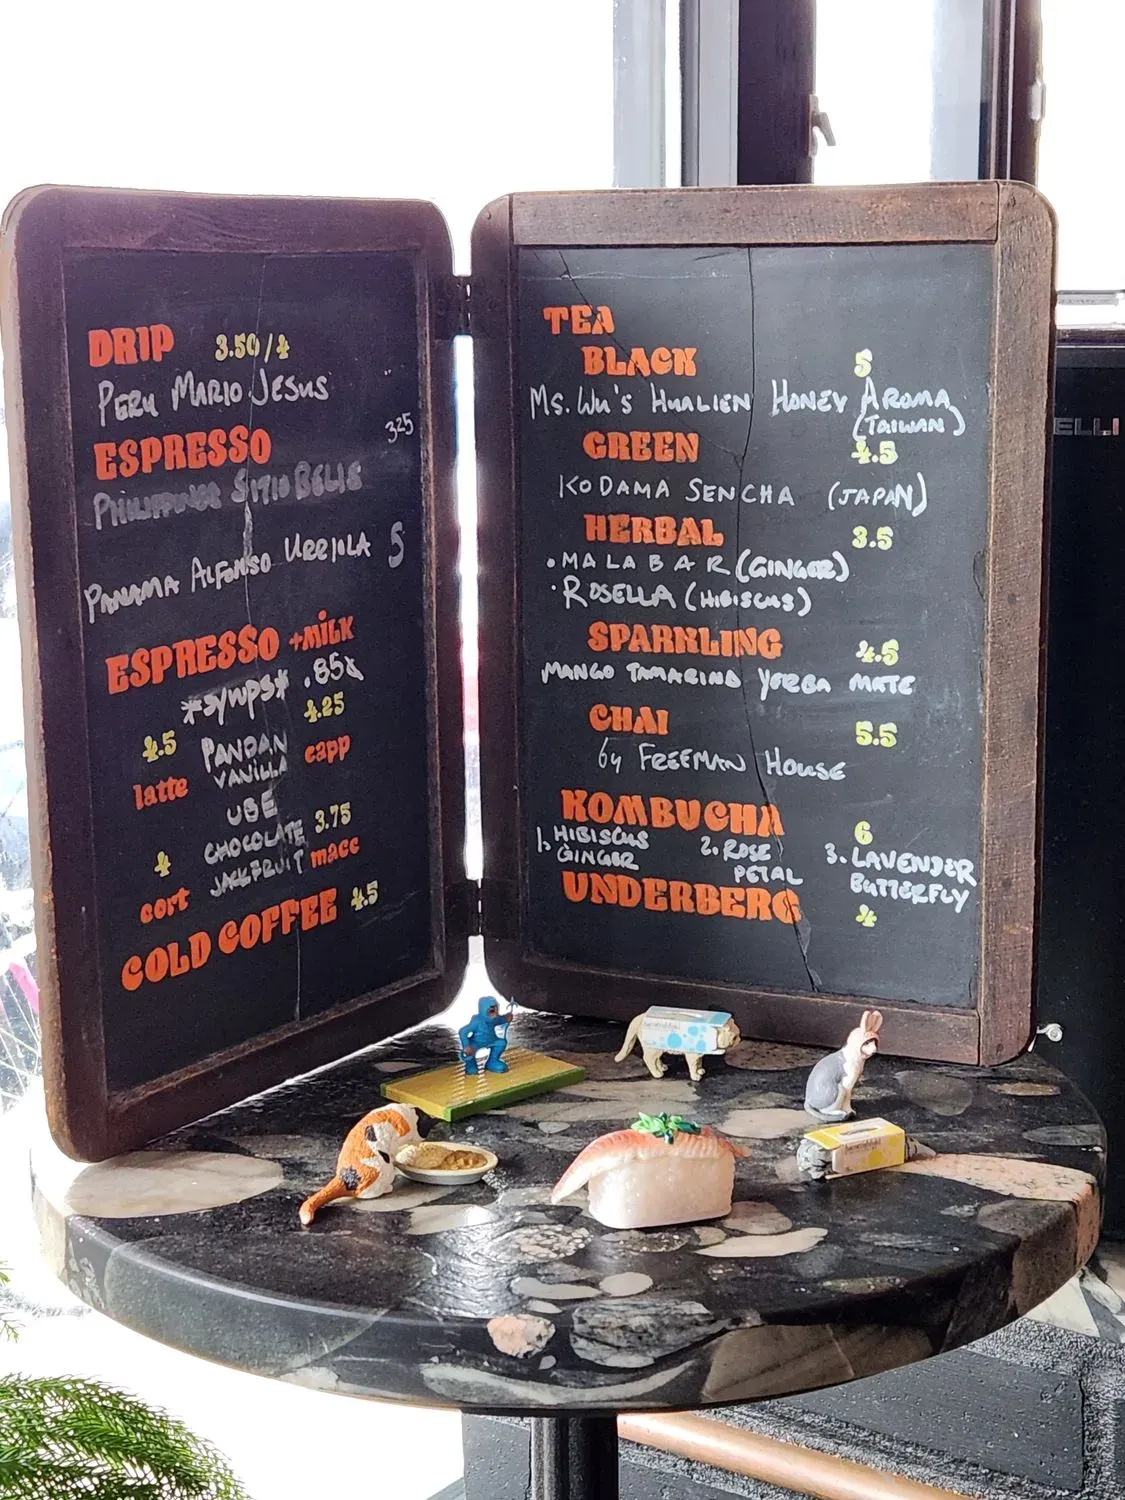 DRIP 3.50/4
PERU MARIO JESUS
ESPRESSO 325
PHILIPPINES SITIO BELIS
PANAMA ALFONSO URRIOLA 5
ESPRESSO +MILK
*SYRUPS* .85¢
4.5 PANDAN 4.25
latte VANILLA capp
UBE
4 CHOCOLATE 3.75
cort JACKFRUIT macc
COLD COFFEE 4.5
TEA
BLACK 5
MS. WU'S HUALIEN HONEY AROMA
(TAIWAN)
GREEN 4.5
KODAMA SENCHA (JAPAN)
HERBAL 3.5
• MALABAR (GINGER)
• ROSELLA (HIBISCUS)
SPARKLING 4.5
MANGO TAMARIND YERBA MATE
CHAI 5.5
by FREEMAN HOUSE
KOMBUCHA 6
1. HIBISCUS 2. ROSE 3. LAVENDER
GINGER PETAL BUTTERFLY
UNDERBERG 4
ELLI